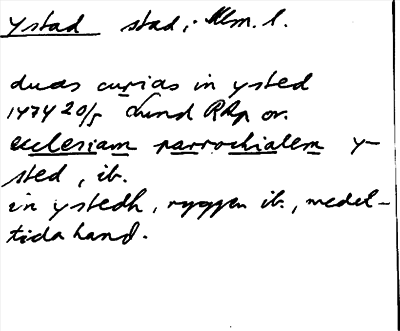 ystad stad, Mlm. l.
duas curias in ysted
1474 20/5 Lund RAp or.
ecclesiam parrochialem y-
sted, ib.
in ystedh, ryggen ib., medel-
tida hand.